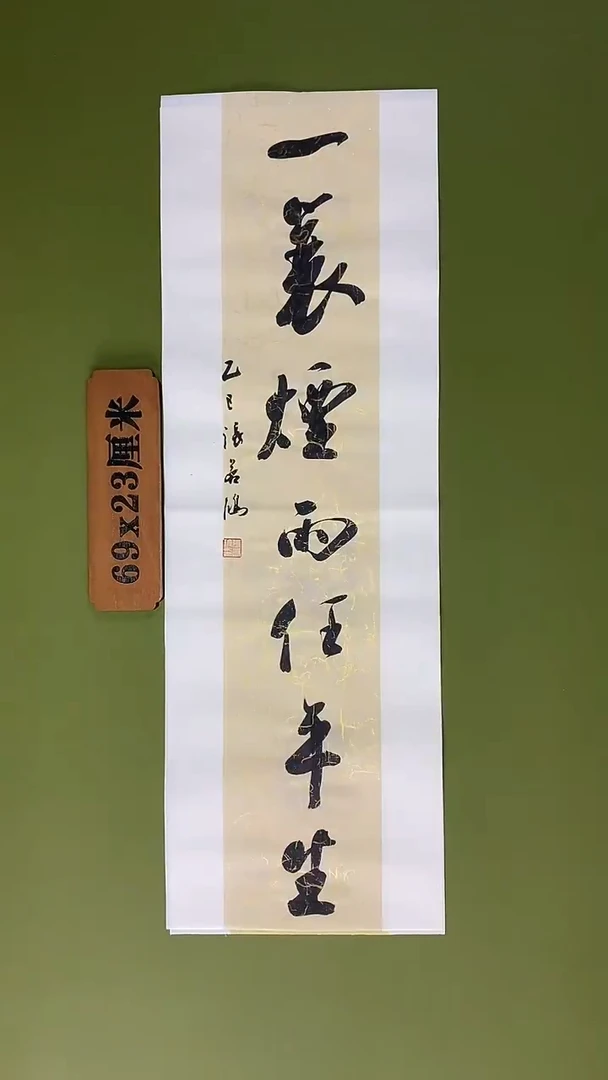 一蓑煙雨任平生
乙巳張若鴻
69x23厘米